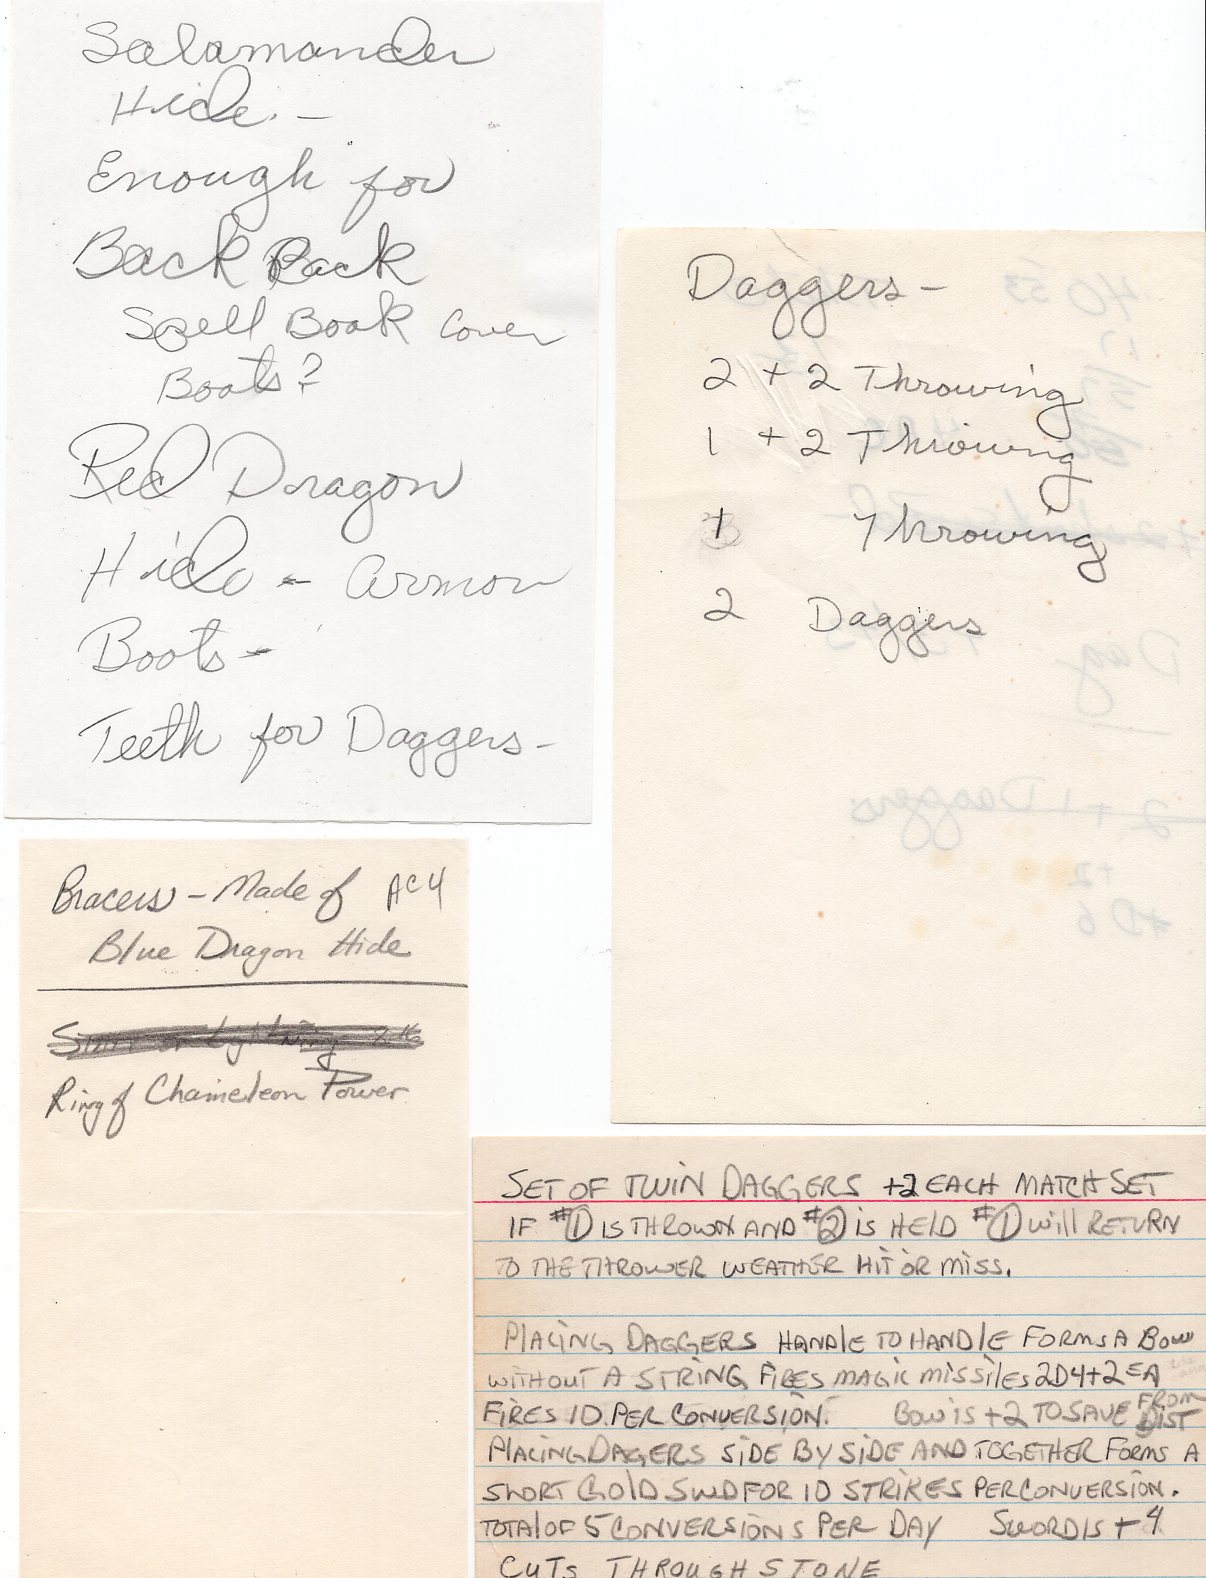 Salamander
Hide. -
Enough for
Back Pack
Spell Book Cover
Boots?
Red Dragon
Hide - armor
Boots -
Teeth for Daggers -
Daggers -
2 +2 Throwing
1 +2 Throwing
1 Throwing
2 Daggers
Bracers - Made of AC4
Blue Dragon Hide
Ring of Chameleon Power
SET OF TWIN DAGGERS +2 EACH MATCH SET
IF #1 IS THROWN AND #2 IS HELD #1 WILL RETURN
TO THE THROWER WEATHER HIT OR MISS.
PLACING DAGGERS HANDLE TO HANDLE FORMS A BOW
WITHOUT A STRING FIRES MAGIC MISSILES 2D4+2 EA
FIRES 10 PER CONVERSION. BOW IS +2 TO SAVE FROM DIST
PLACING DAGERS SIDE BY SIDE AND TOGETHER FORMS A
SHORT GOLD SWD FOR 10 STRIKES PER CONVERSION.
TOTAL OF 5 CONVERSIONS PER DAY SWORD IS +4
CUTS THROUGH STONE
40 53
Dag
2 +1 Daggers
+2
+D6